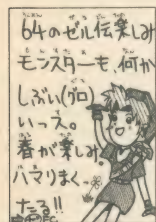 64のゼル伝楽しみ
モンスターも、何か
しぶい(グロ)
いっえ。
春が楽しみ。
ハマりまく。
たる!!